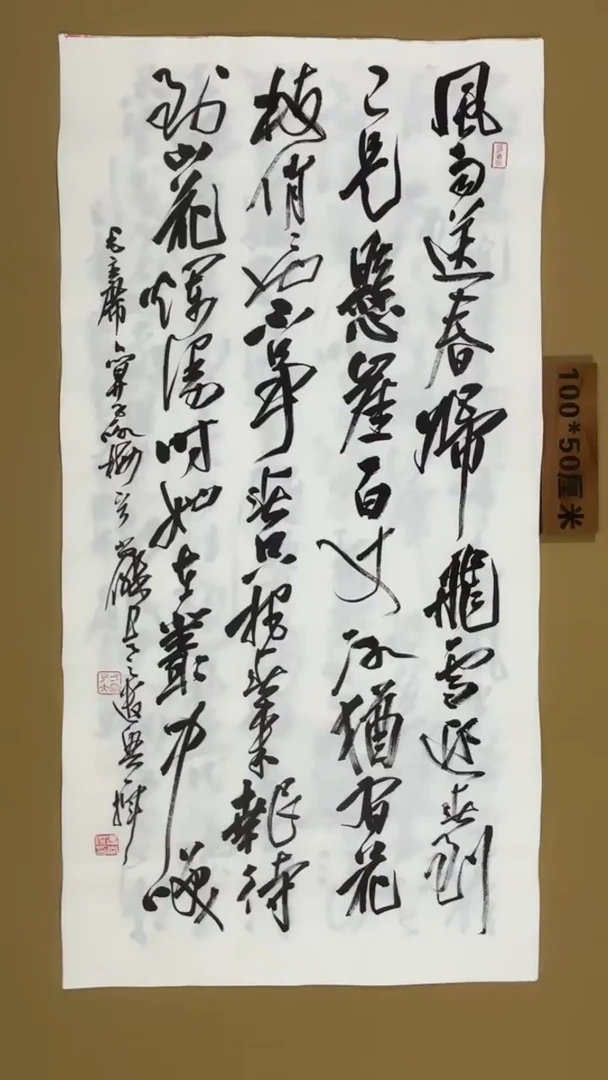 風雨送春歸飛雪迎春到
已是懸崖百丈冰猶有花
枝俏々也不爭春只把春來報待
到山花爛漫時她在叢中咲
毛主席卜算子咏梅
100*50厘米